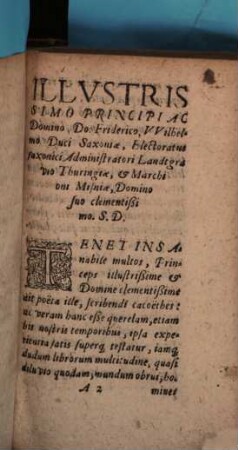 ILLVSTRIS
SIMO PRINCIPI AC
Domino, Do. Friderico, VVilhel-
mo Duci Saxoniæ, Electoratus
saxonici Administratori Landtgra
vio Thuringiæ, & Marchi
oni Misniæ, Domino
suo clementissi
mo. S. D.
TENET INSA-
nabile multos, Prin
ceps illustrissime &
Domine clementissime
ait poëta ille, scribendi cacoëthes:
ac veram hanc esse querelam, etiam
his nostris temporibus, ipsa expe-
rientia satis superq; testatur, iamq;
dudum librorum multitudine, quasi
diluvio quodam, mundum obrui, ho-
A 2 mines